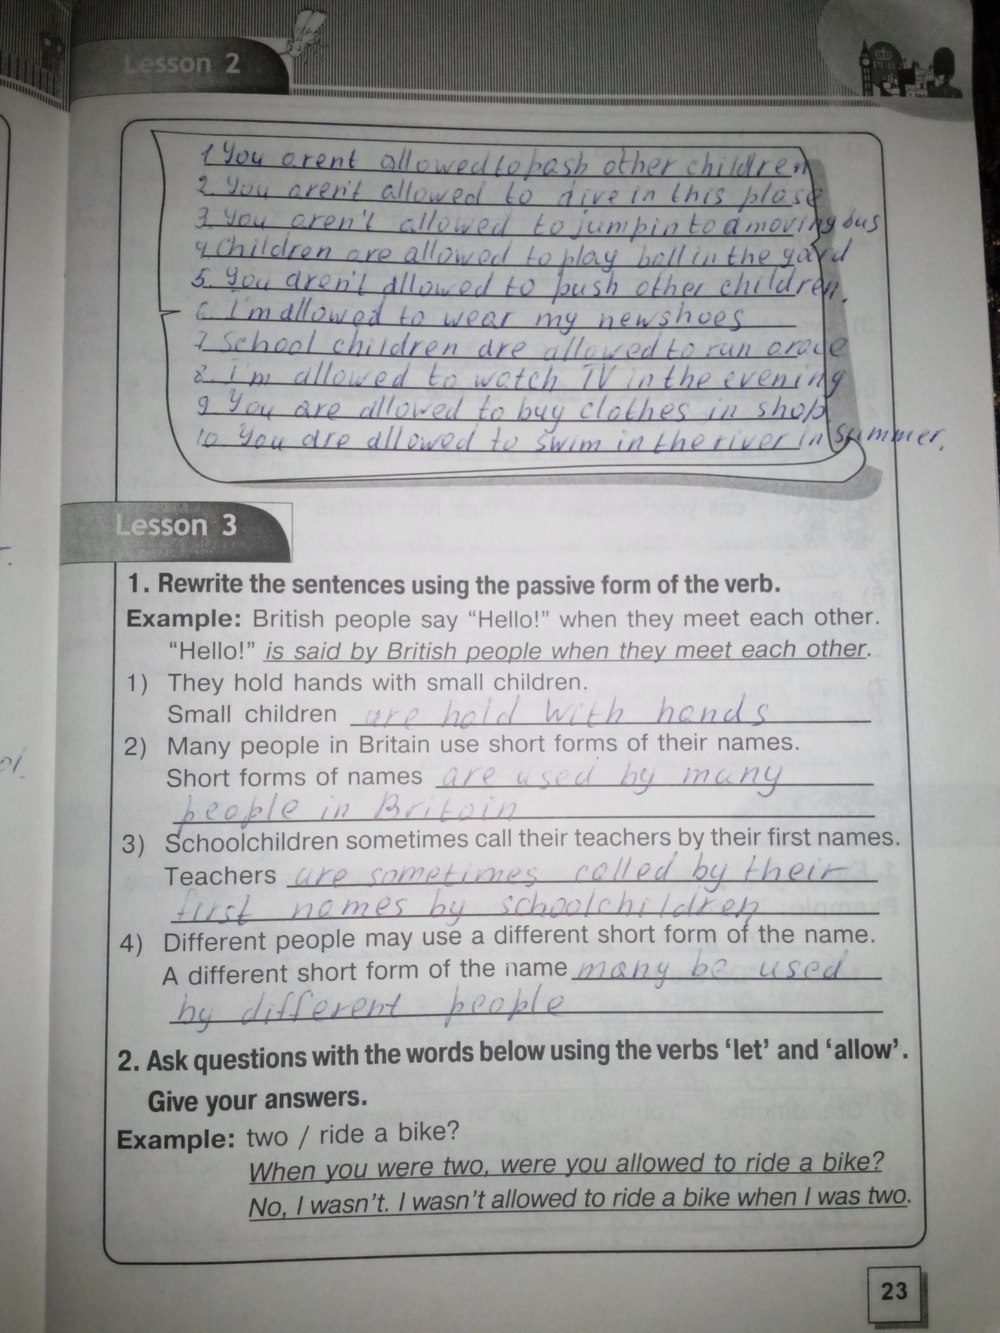 Lesson 2
1 You arent allowed to pash other children
2. You aren't allowed to dive in this plase
3. You aren't allowed to jump in to a moving bus
4 Children are allowed to play ball in the yard
5. You aren't allowed to push other children.
6. I'm allowed to wear my new shoes
7 School children are allowed to run
8. I'm allowed to watch TV in the evening
9 You are allowed to buy clothes in shop
10 You are allowed to swim in the river in summer.
Lesson 3
1. Rewrite the sentences using the passive form of the verb.
Example: British people say “Hello!” when they meet each other.
“Hello!” is said by British people when they meet each other.
1) They hold hands with small children.
Small children are hold with hands
2) Many people in Britain use short forms of their names.
Short forms of names are used by many
people in Britain
3) Schoolchildren sometimes call their teachers by their first names.
Teachers are sometimes called by their
first names by schoolchildren
4) Different people may use a different short form of the name.
A different short form of the name many be used
by different people
2. Ask questions with the words below using the verbs ‘let’ and ‘allow’.
Give your answers.
Example: two / ride a bike?
When you were two, were you allowed to ride a bike?
No, I wasn’t. I wasn’t allowed to ride a bike when I was two.
23